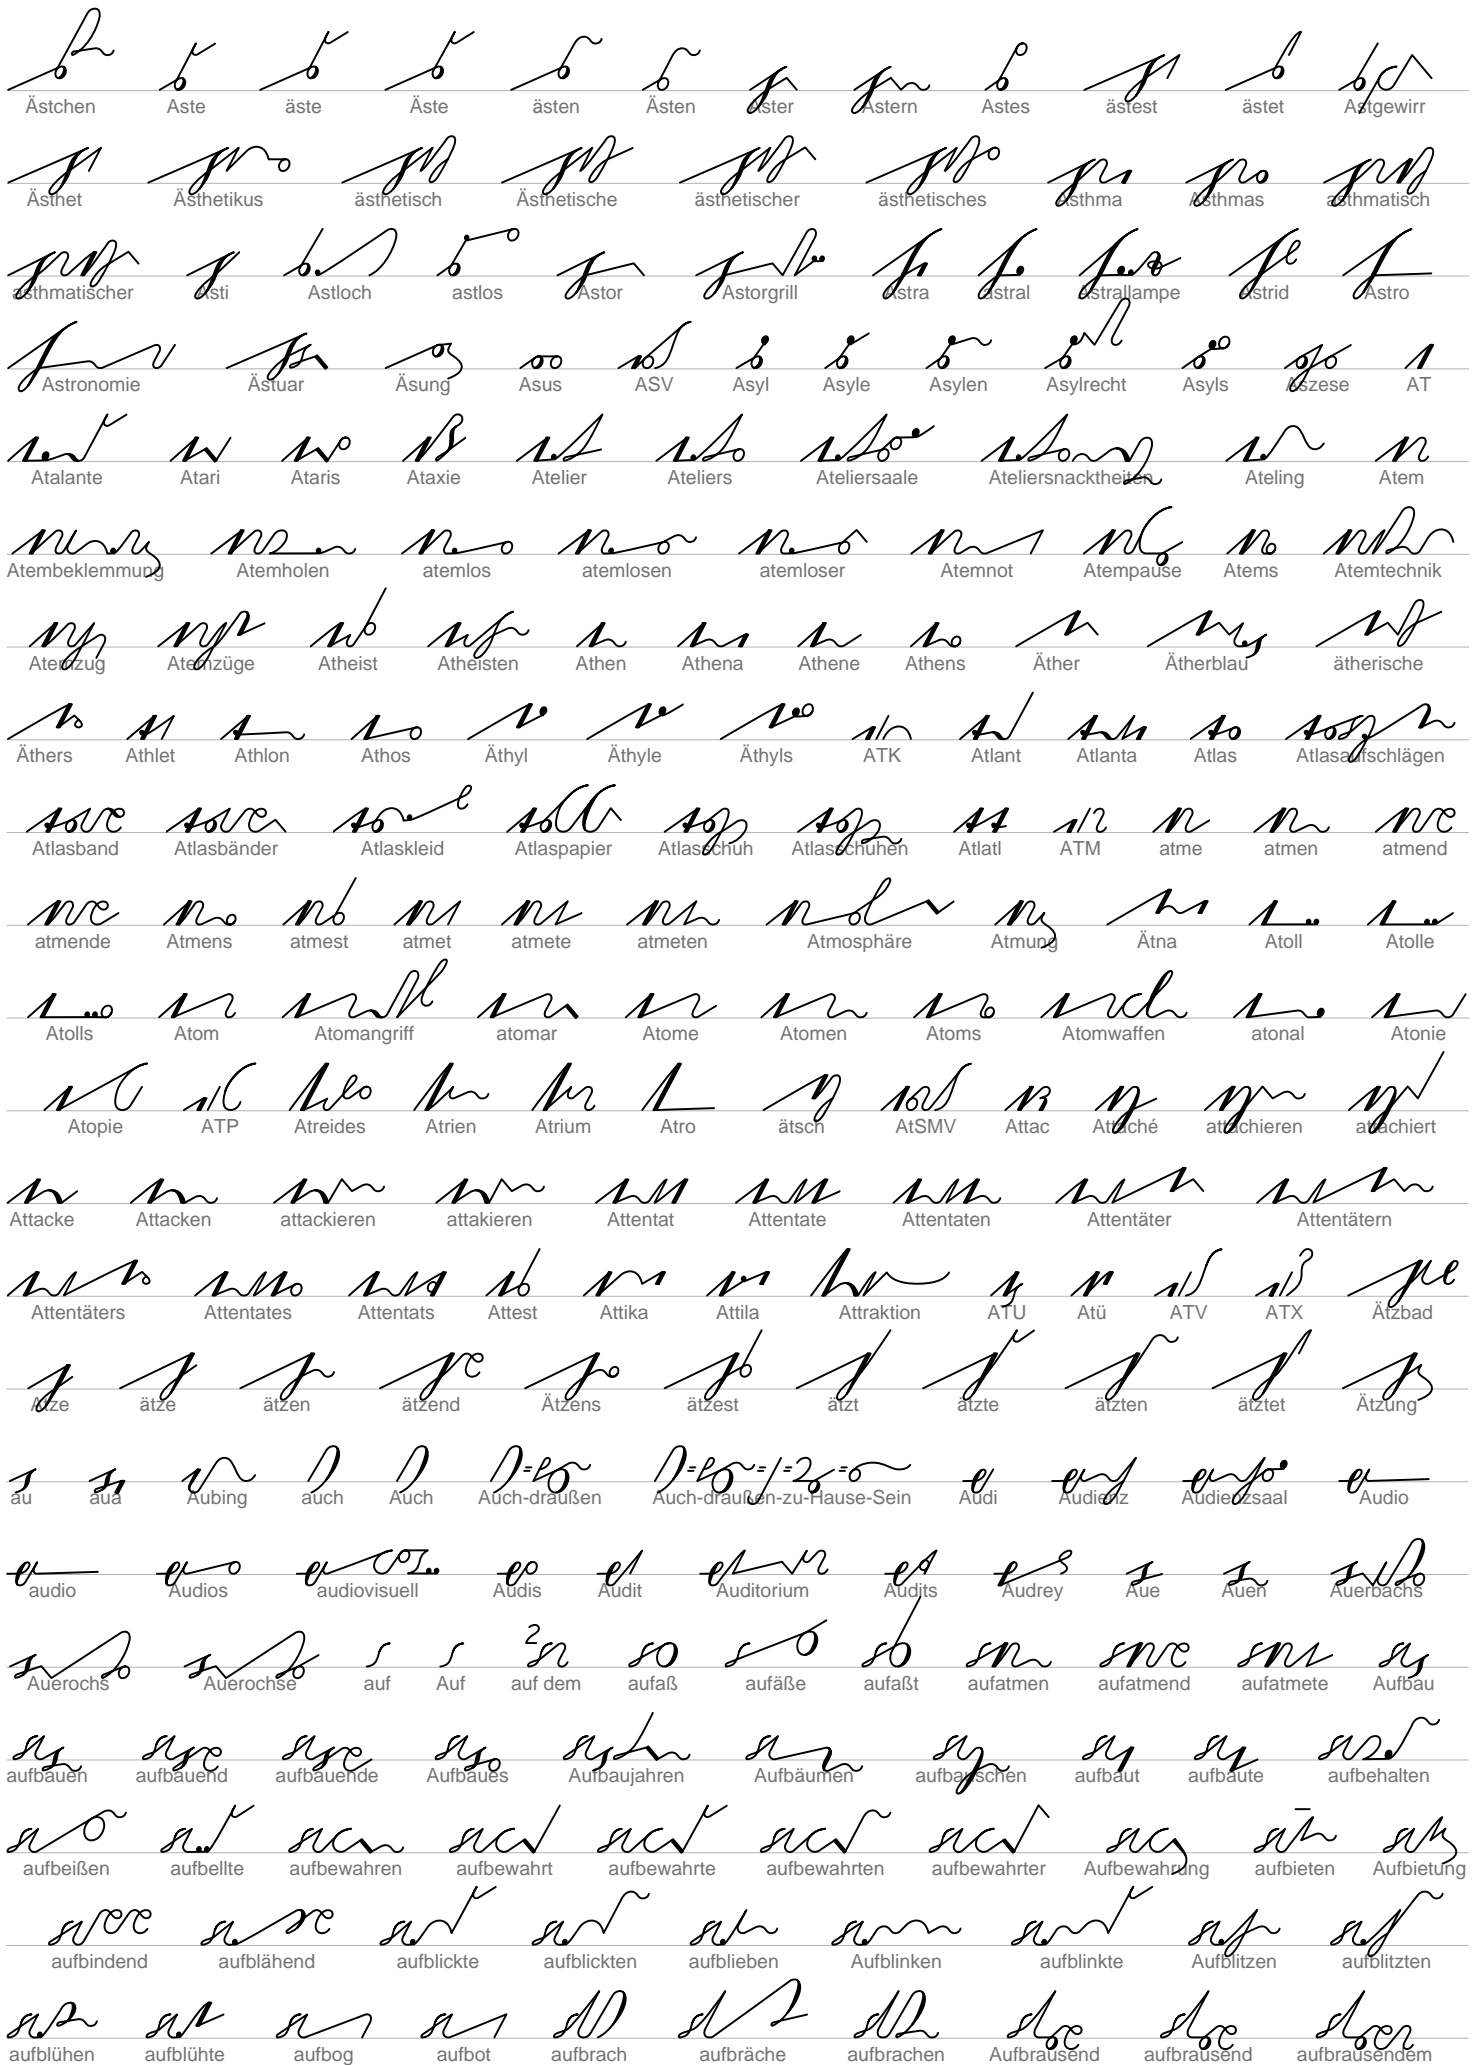 Ästchen Aste äste Äste ästen Ästen Aster Astern Astes ästest ästet Astgewirr
Ästhet Ästhetikus ästhetisch Ästhetische ästhetischer ästhetisches Asthma Asthmas asthmatisch
asthmatischer Asti Astloch astlos Astor Astorgrill Astra astral Astrallampe Astrid Astro
Astronomie Ästuar Äsung Asus ASV Asyl Asyle Asylen Asylrecht Asyls Aszese AT
Atalante Atari Ataris Ataxie Atelier Ateliers Ateliersaale Ateliersnacktheiten Ateling Atem
Atembeklemmung Atemholen atemlos atemlosen atemloser Atemnot Atempause Atems Atemtechnik
Atemzug Atemzüge Atheist Atheisten Athen Athena Athene Athens Äther Ätherblau ätherische
Äthers Athlet Athlon Athos Äthyl Äthyle Äthyls ATK Atlant Atlanta Atlas Atlasaufschlägen
Atlasband Atlasbänder Atlaskleid Atlaspapier Atlasschuh Atlasschuhen Atlatl ATM atme atmen atmend
atmende Atmens atmest atmet atmete atmeten Atmosphäre Atmung Ätna Atoll Atolle
Atolls Atom Atomangriff atomar Atome Atomen Atoms Atomwaffen atonal Atonie
Atopie ATP Atreides Atrien Atrium Atro ätsch AtSMV Attac Attaché attachieren attachiert
Attacke Attacken attackieren attakieren Attentat Attentate Attentaten Attentäter Attentätern
Attentäters Attentates Attentats Attest Attika Attila Attraktion ATU Atü ATV ATX Ätzbad
Atze ätze ätzen ätzend Ätzens ätzest ätzt ätzte ätzten ätztet Ätzung
au aua Aubing auch Auch Auch-draußen Auch-draußen-zu-Hause-Sein Audi Audienz Audienzsaal Audio
audio Audios audiovisuell Audis Audit Auditorium Audits Audrey Aue Auen Auerbachs
Auerochs Auerochse auf Auf auf dem aufaß aufäße aufaßt aufatmen aufatmend aufatmete Aufbau
aufbauen aufbauend aufbauende Aufbaues Aufbaujahren Aufbäumen aufbauschen aufbaut aufbaute aufbehalten
aufbeißen aufbellte aufbewahren aufbewahrt aufbewahrte aufbewahrten aufbewahrter Aufbewahrung aufbieten Aufbietung
aufbindend aufblähend aufblickte aufblickten aufblieben Aufblinken aufblinkte Aufblitzen aufblitzten
aufblühen aufblühte aufbog aufbot aufbrach aufbräche aufbrachen Aufbrausend aufbrausend aufbrausendem